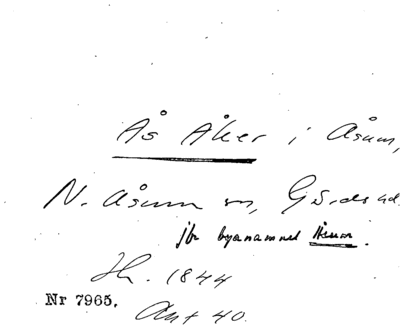 Ås Åker i Åsum,
N. Åsum sn, Gärds hd.
jfr byanamnet Åsum.
Jh. 1844
Nr 7965.
Akt 40.